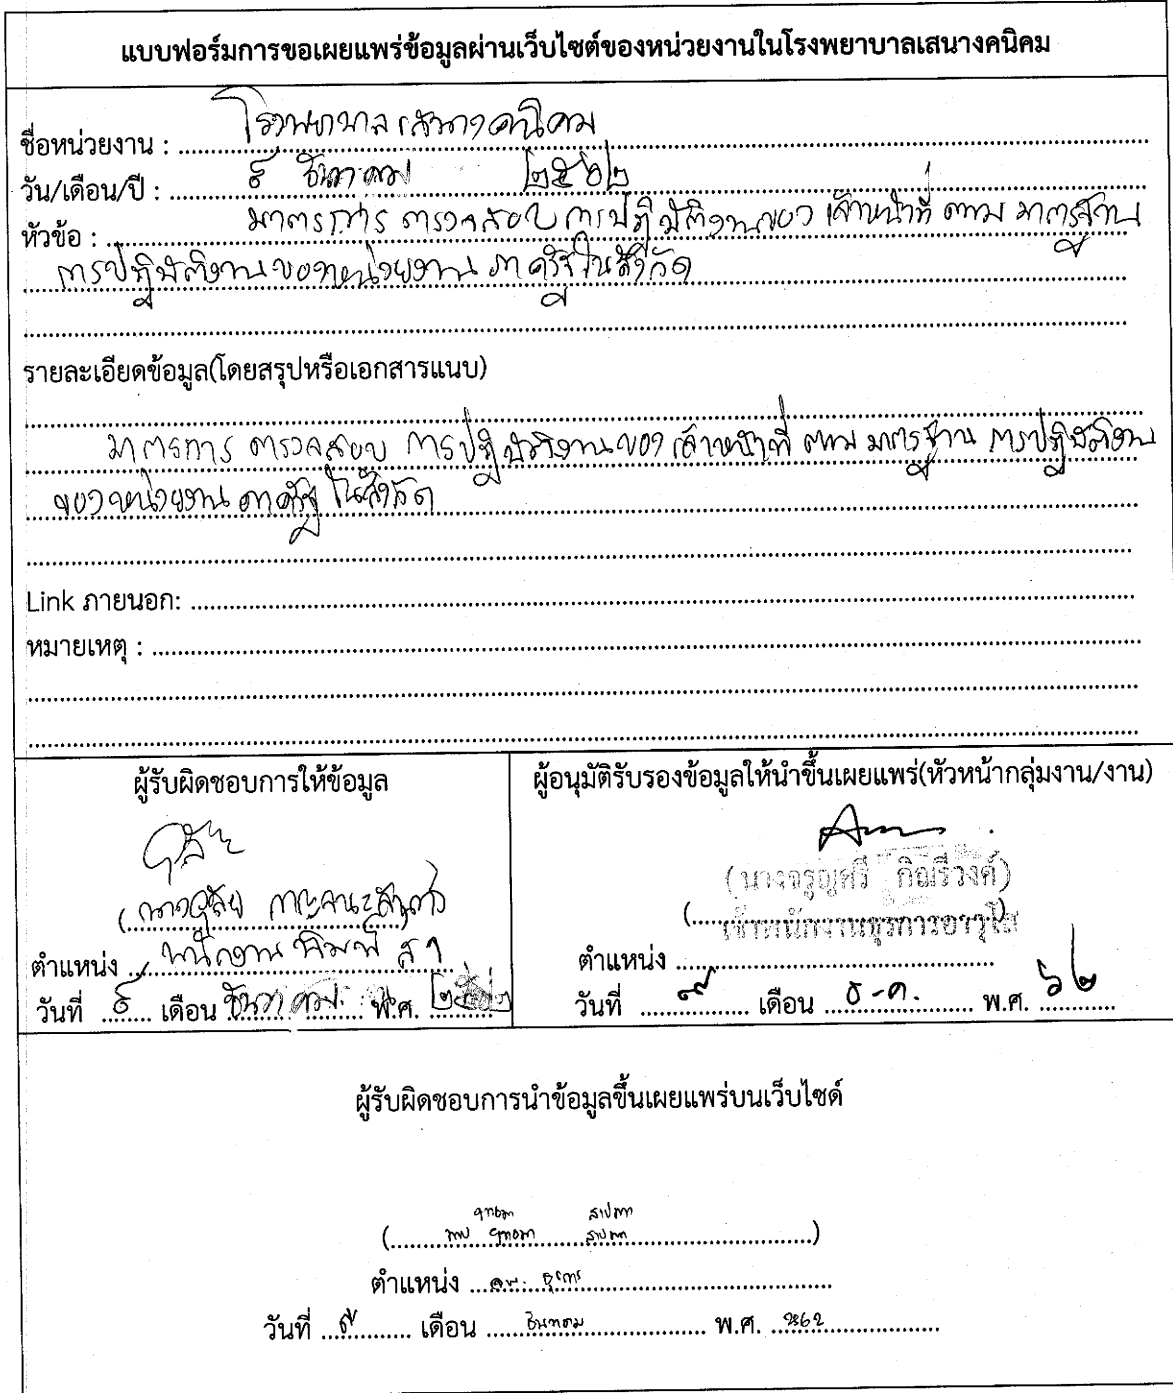 แบบฟอร์มการขอเผยแพร่ข้อมูลผ่านเว็บไซต์ของหน่วยงานในโรงพยาบาลเสนางคนิคม
ชื่อหน่วยงาน : โรงพยาบาลเสนางคนิคม
วัน/เดือน/ปี : ธันวาคม ๒๕๖๒
หัวข้อ : มาตรการ ตรวจสอบ การปฏิบัติงานของ เจ้าหน้าที่ ตาม มาตรฐาน
การปฏิบัติงานของหน่วยงาน ภาครัฐในสังกัด
รายละเอียดข้อมูล(โดยสรุปหรือเอกสารแนบ)
มาตรการ ตรวจสอบ การปฏิบัติงานของ เจ้าหน้าที่ ตาม มาตรฐาน การปฏิบัติงาน
ของหน่วยงาน ภาครัฐ ในสังกัด
Link ภายนอก:
หมายเหตุ :
ผู้รับผิดชอบการให้ข้อมูล
ตำแหน่ง พนักงานพิมพ์
วันที่ เดือน ธันวาคม พ.ศ. ๒๕๖๒
ผู้อนุมัติรับรองข้อมูลให้นำขึ้นเผยแพร่(หัวหน้ากลุ่มงาน/งาน)
(นางจรูญศรี)
เจ้าพนักงานธุรการอาวุโส
ตำแหน่ง
วันที่ ๙ เดือน ธ.ค. พ.ศ. ๖๒
ผู้รับผิดชอบการนำข้อมูลขึ้นเผยแพร่บนเว็บไซด์
ตำแหน่ง ธุรการ
วันที่ เดือน ธันวาคม พ.ศ. 2562